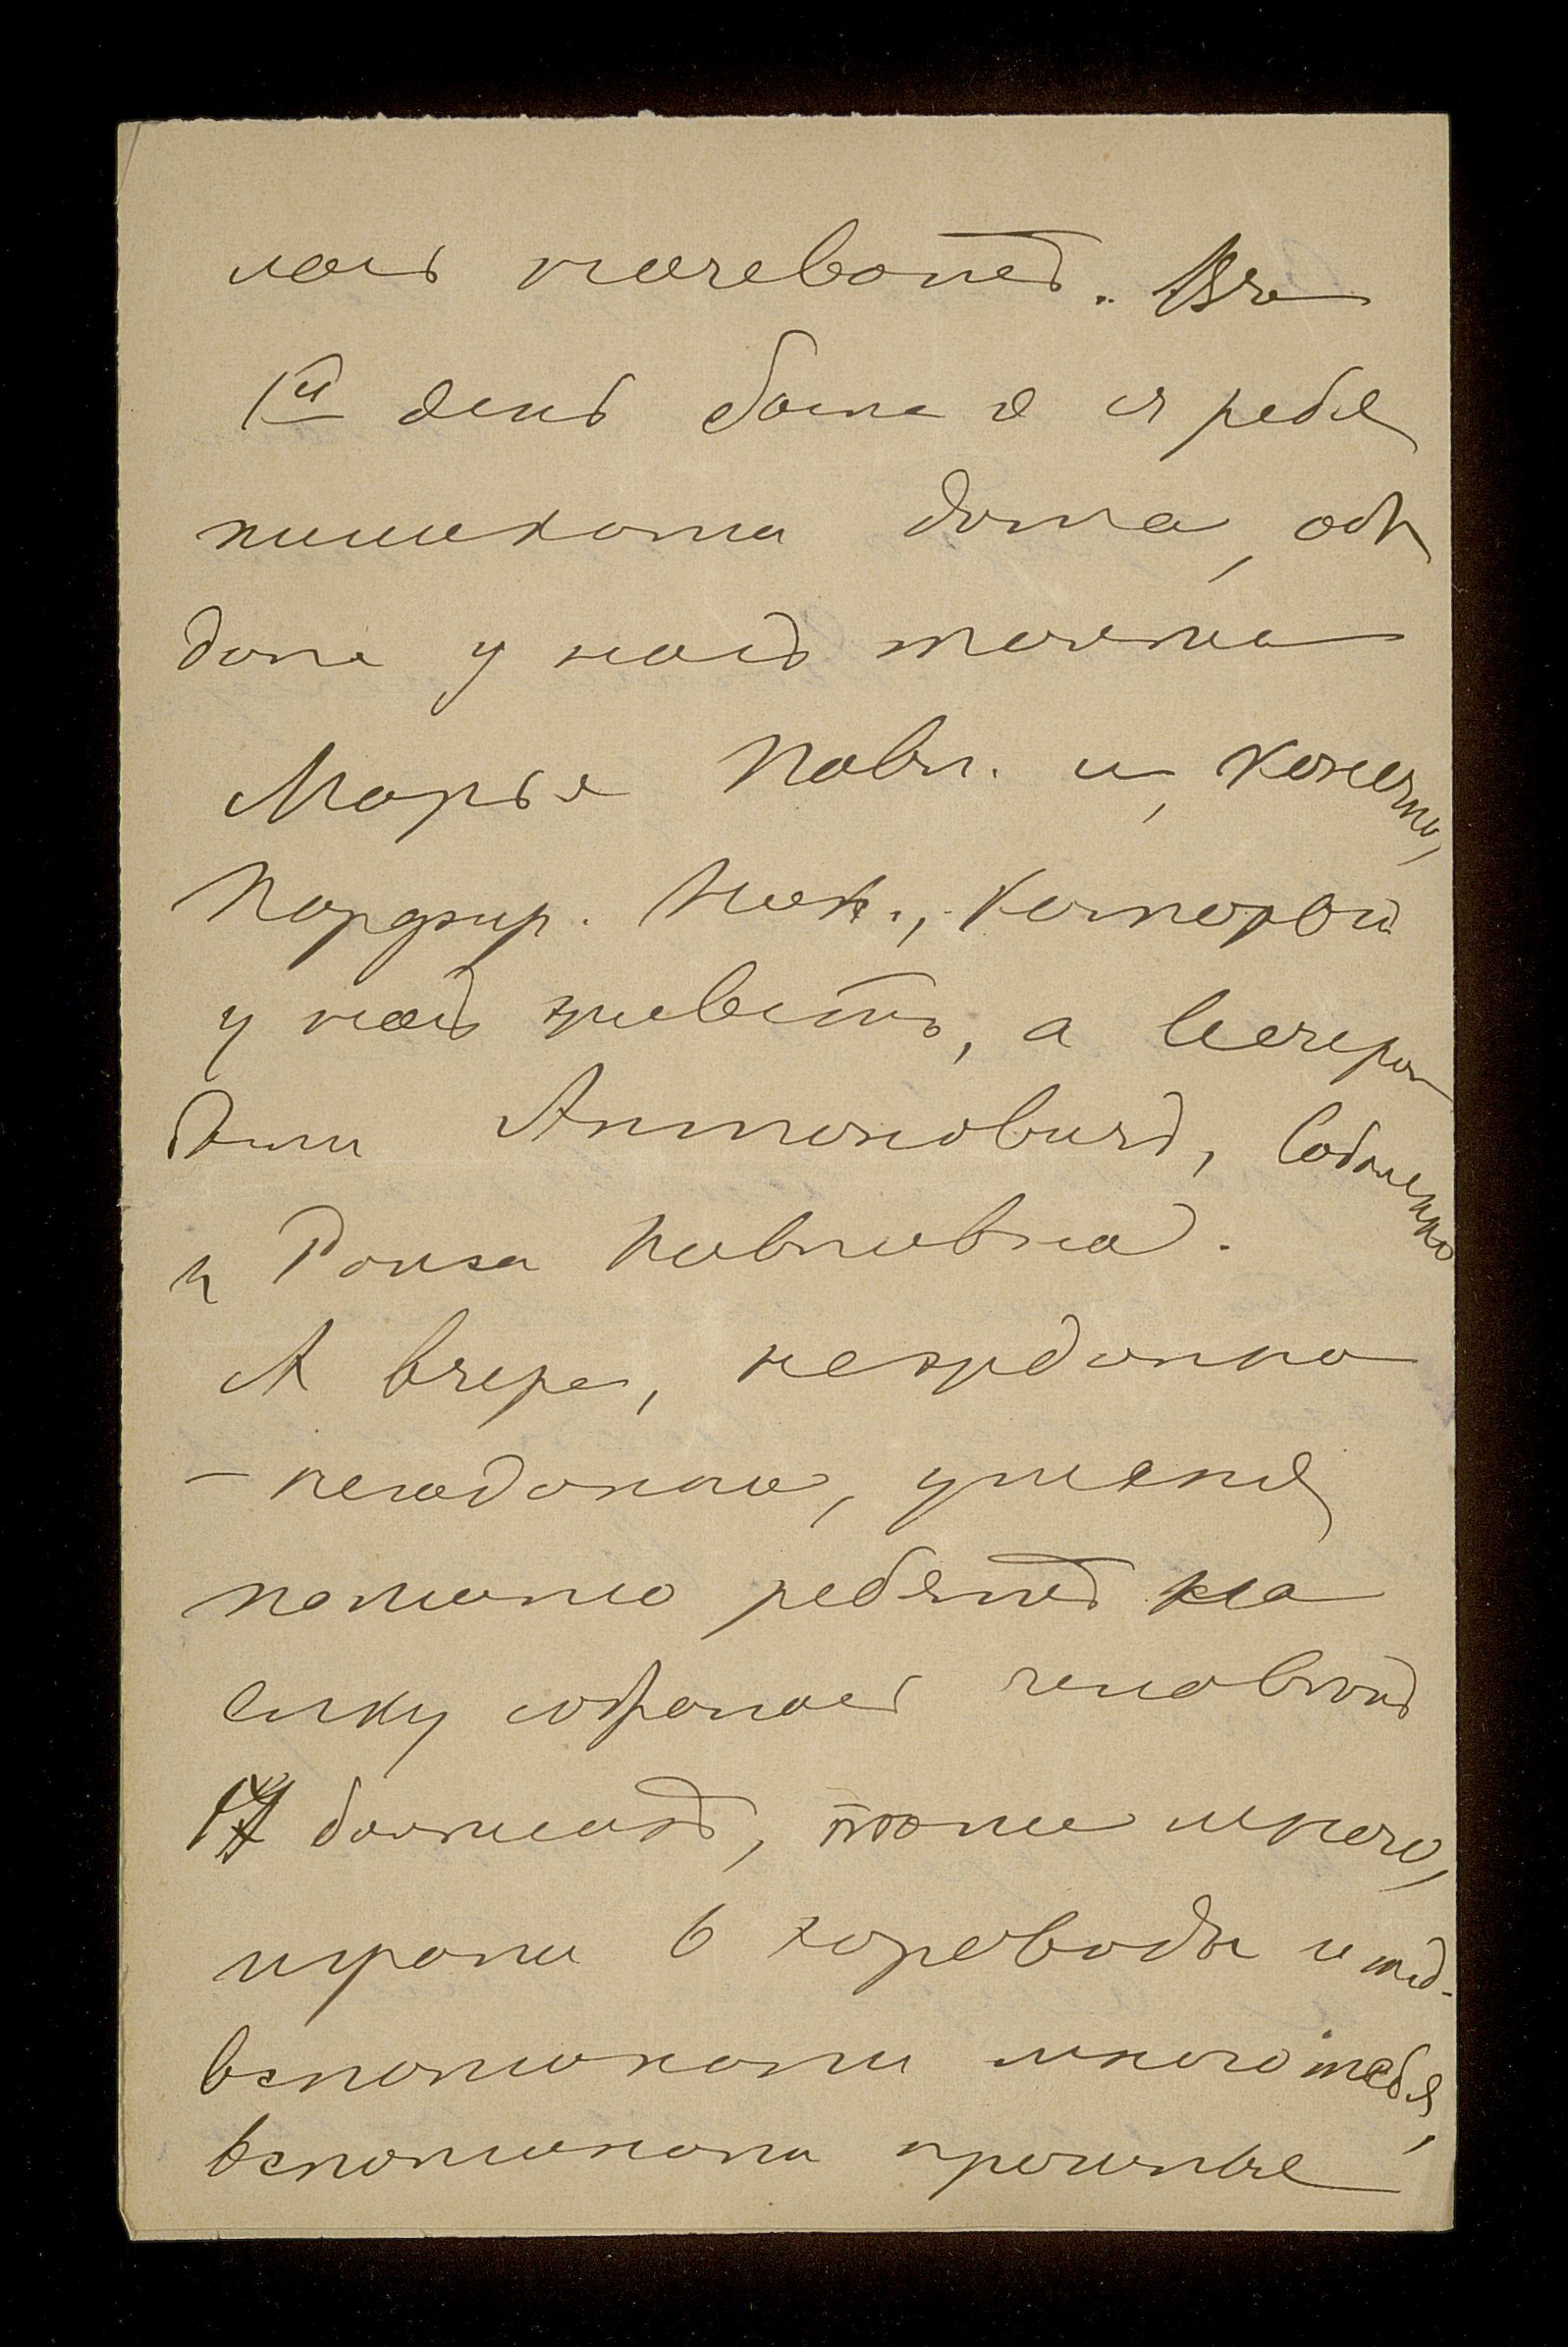 насъ ночевать. На
1й день была я съ ребя
тишками дома, обѣ
дала у насъ тетя
Марья Павл. и, конечно,
Порфир. Ник., который
у насъ живетъ, а вечеромъ
были Антоновичъ, Соболенко
и Роиза Павловна.
А вчера, нежданно
- негаданно, у меня
помимо ребятъ на
елку собралось человѣкъ
17 большихъ, пѣли много,
играли в хороводы и тд.
вспоминали много тебя,
вспоминали прошлые